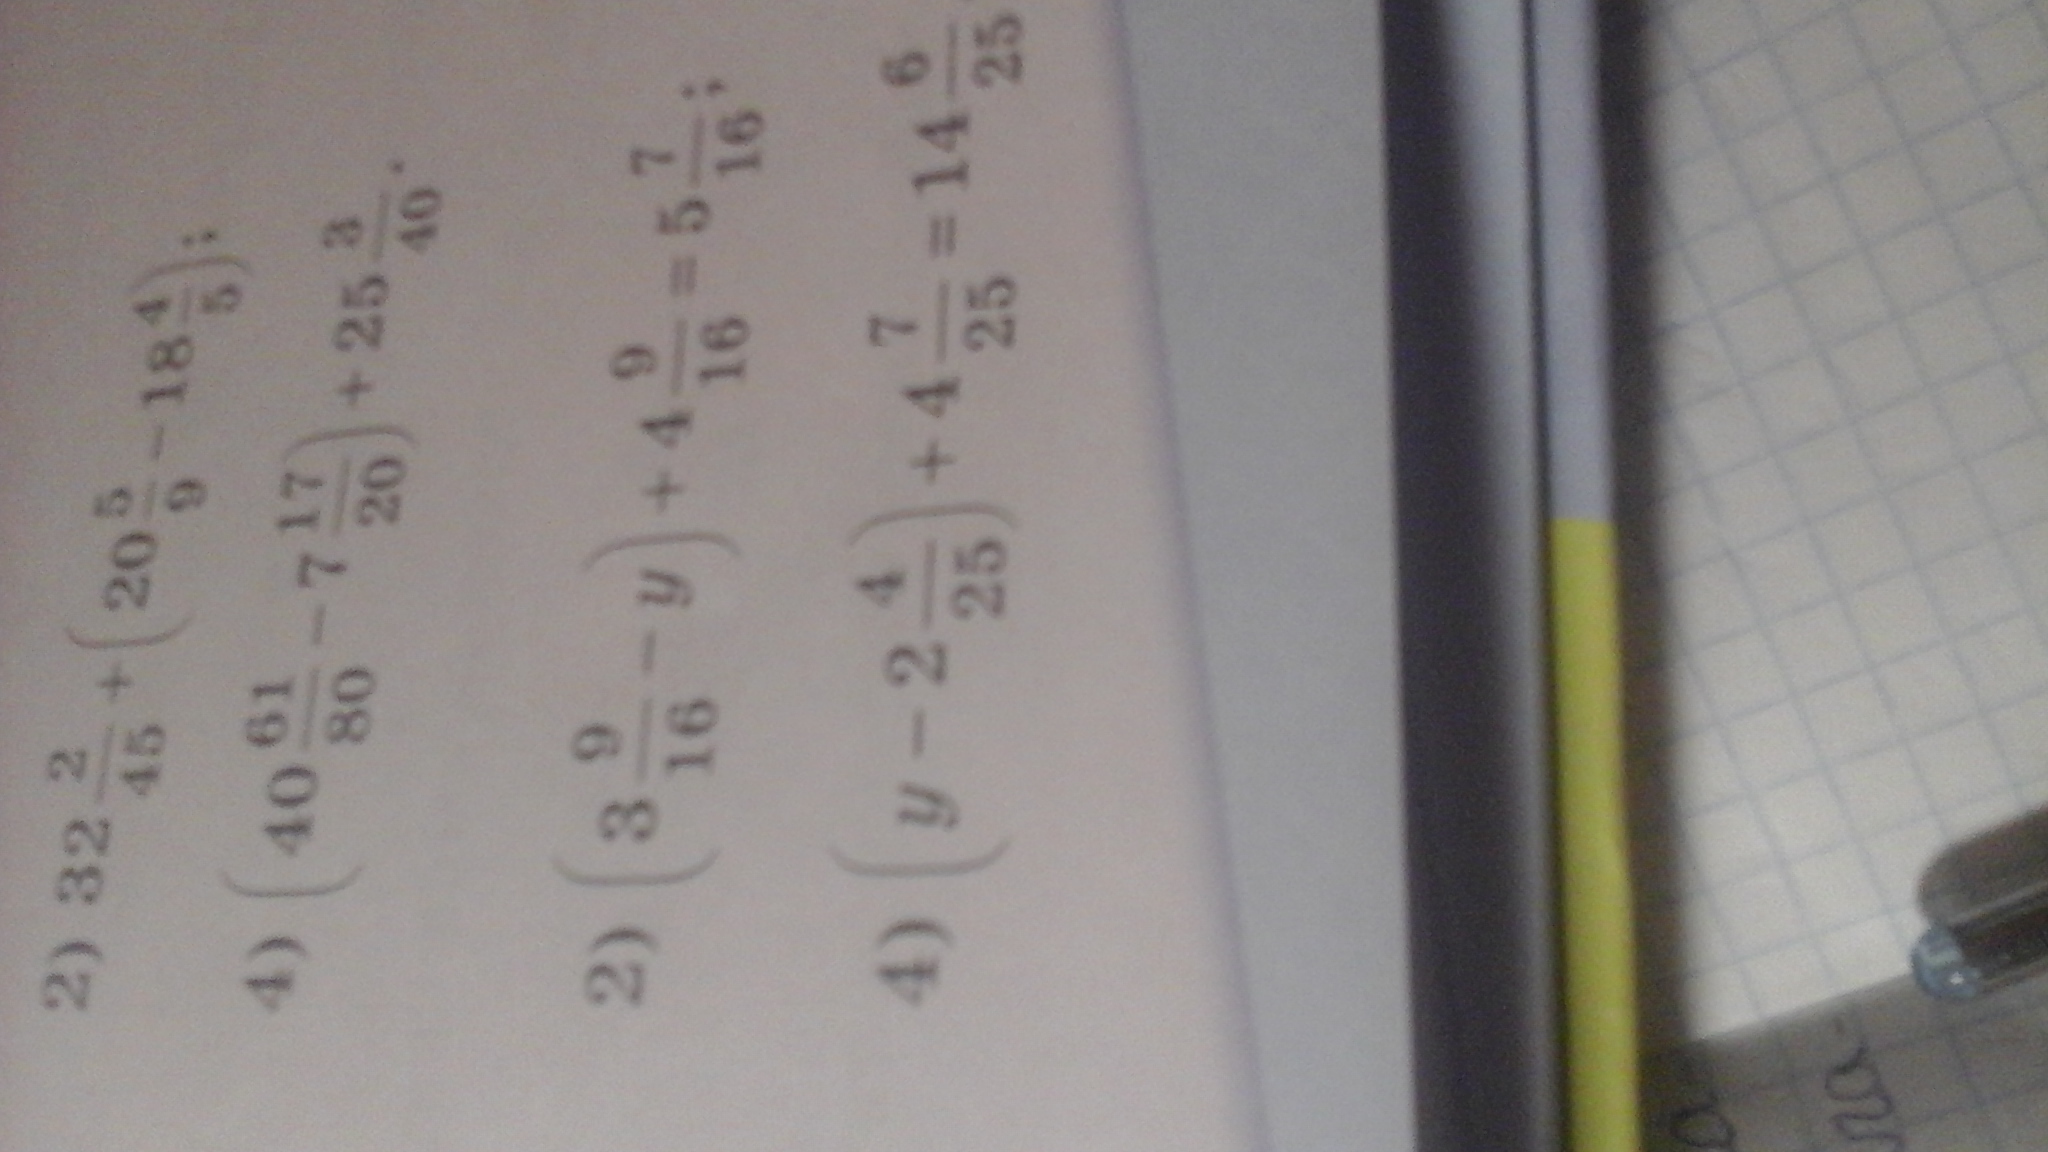 2) 32 2/45 + (20 5/9 − 18 4/5);
4) (40 61/80 − 7 17/20) + 25 3/40.
2) (3 9/16 − y) + 4 9/16 = 5 7/16;
4) (y − 2 4/25) + 4 7/25 = 14 6/25